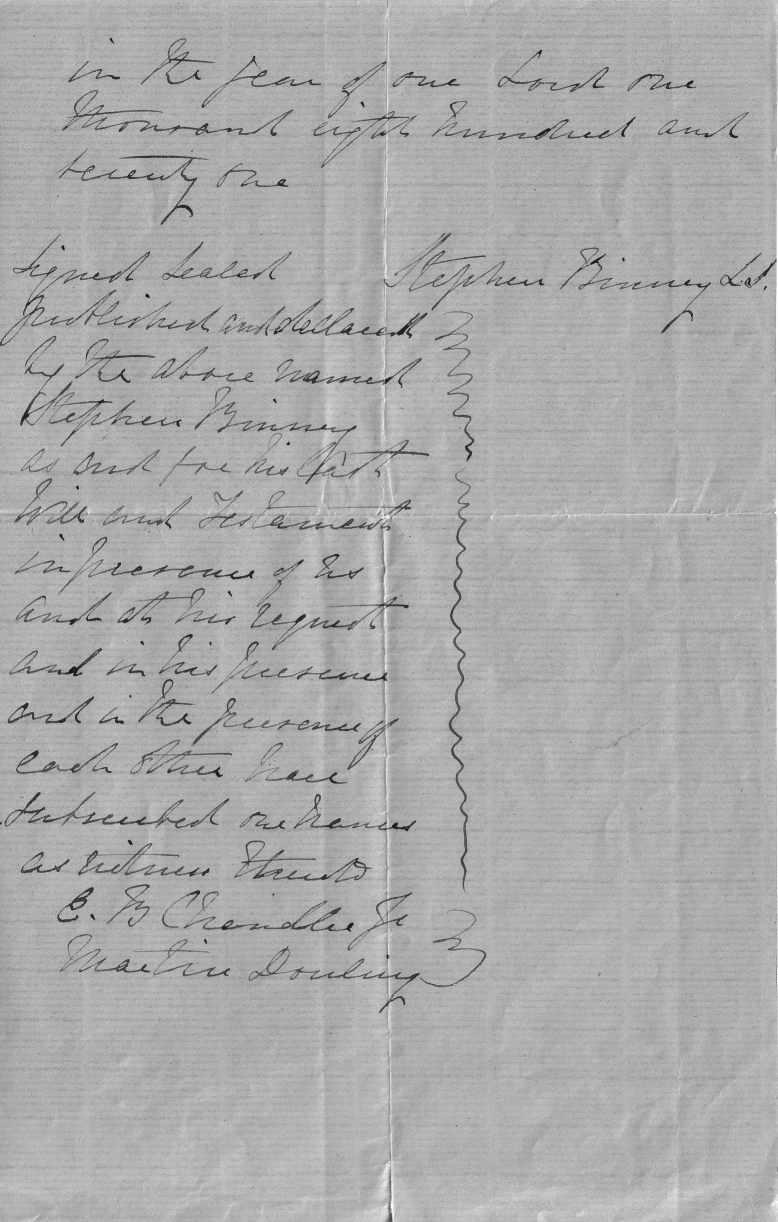 in the year of our Lord one
thousand eight hundred and
seventy one
Signed Sealed
Stephen Binney L.S.
published and declared
by the above named
Stephen Binney
as and for his last
Will and Testament
in presence of us
and at his request
and in his presence
and in the presence of
each other have
subscribed our names
as witness thereto
E. B Chandler Jr
Martin Dowling